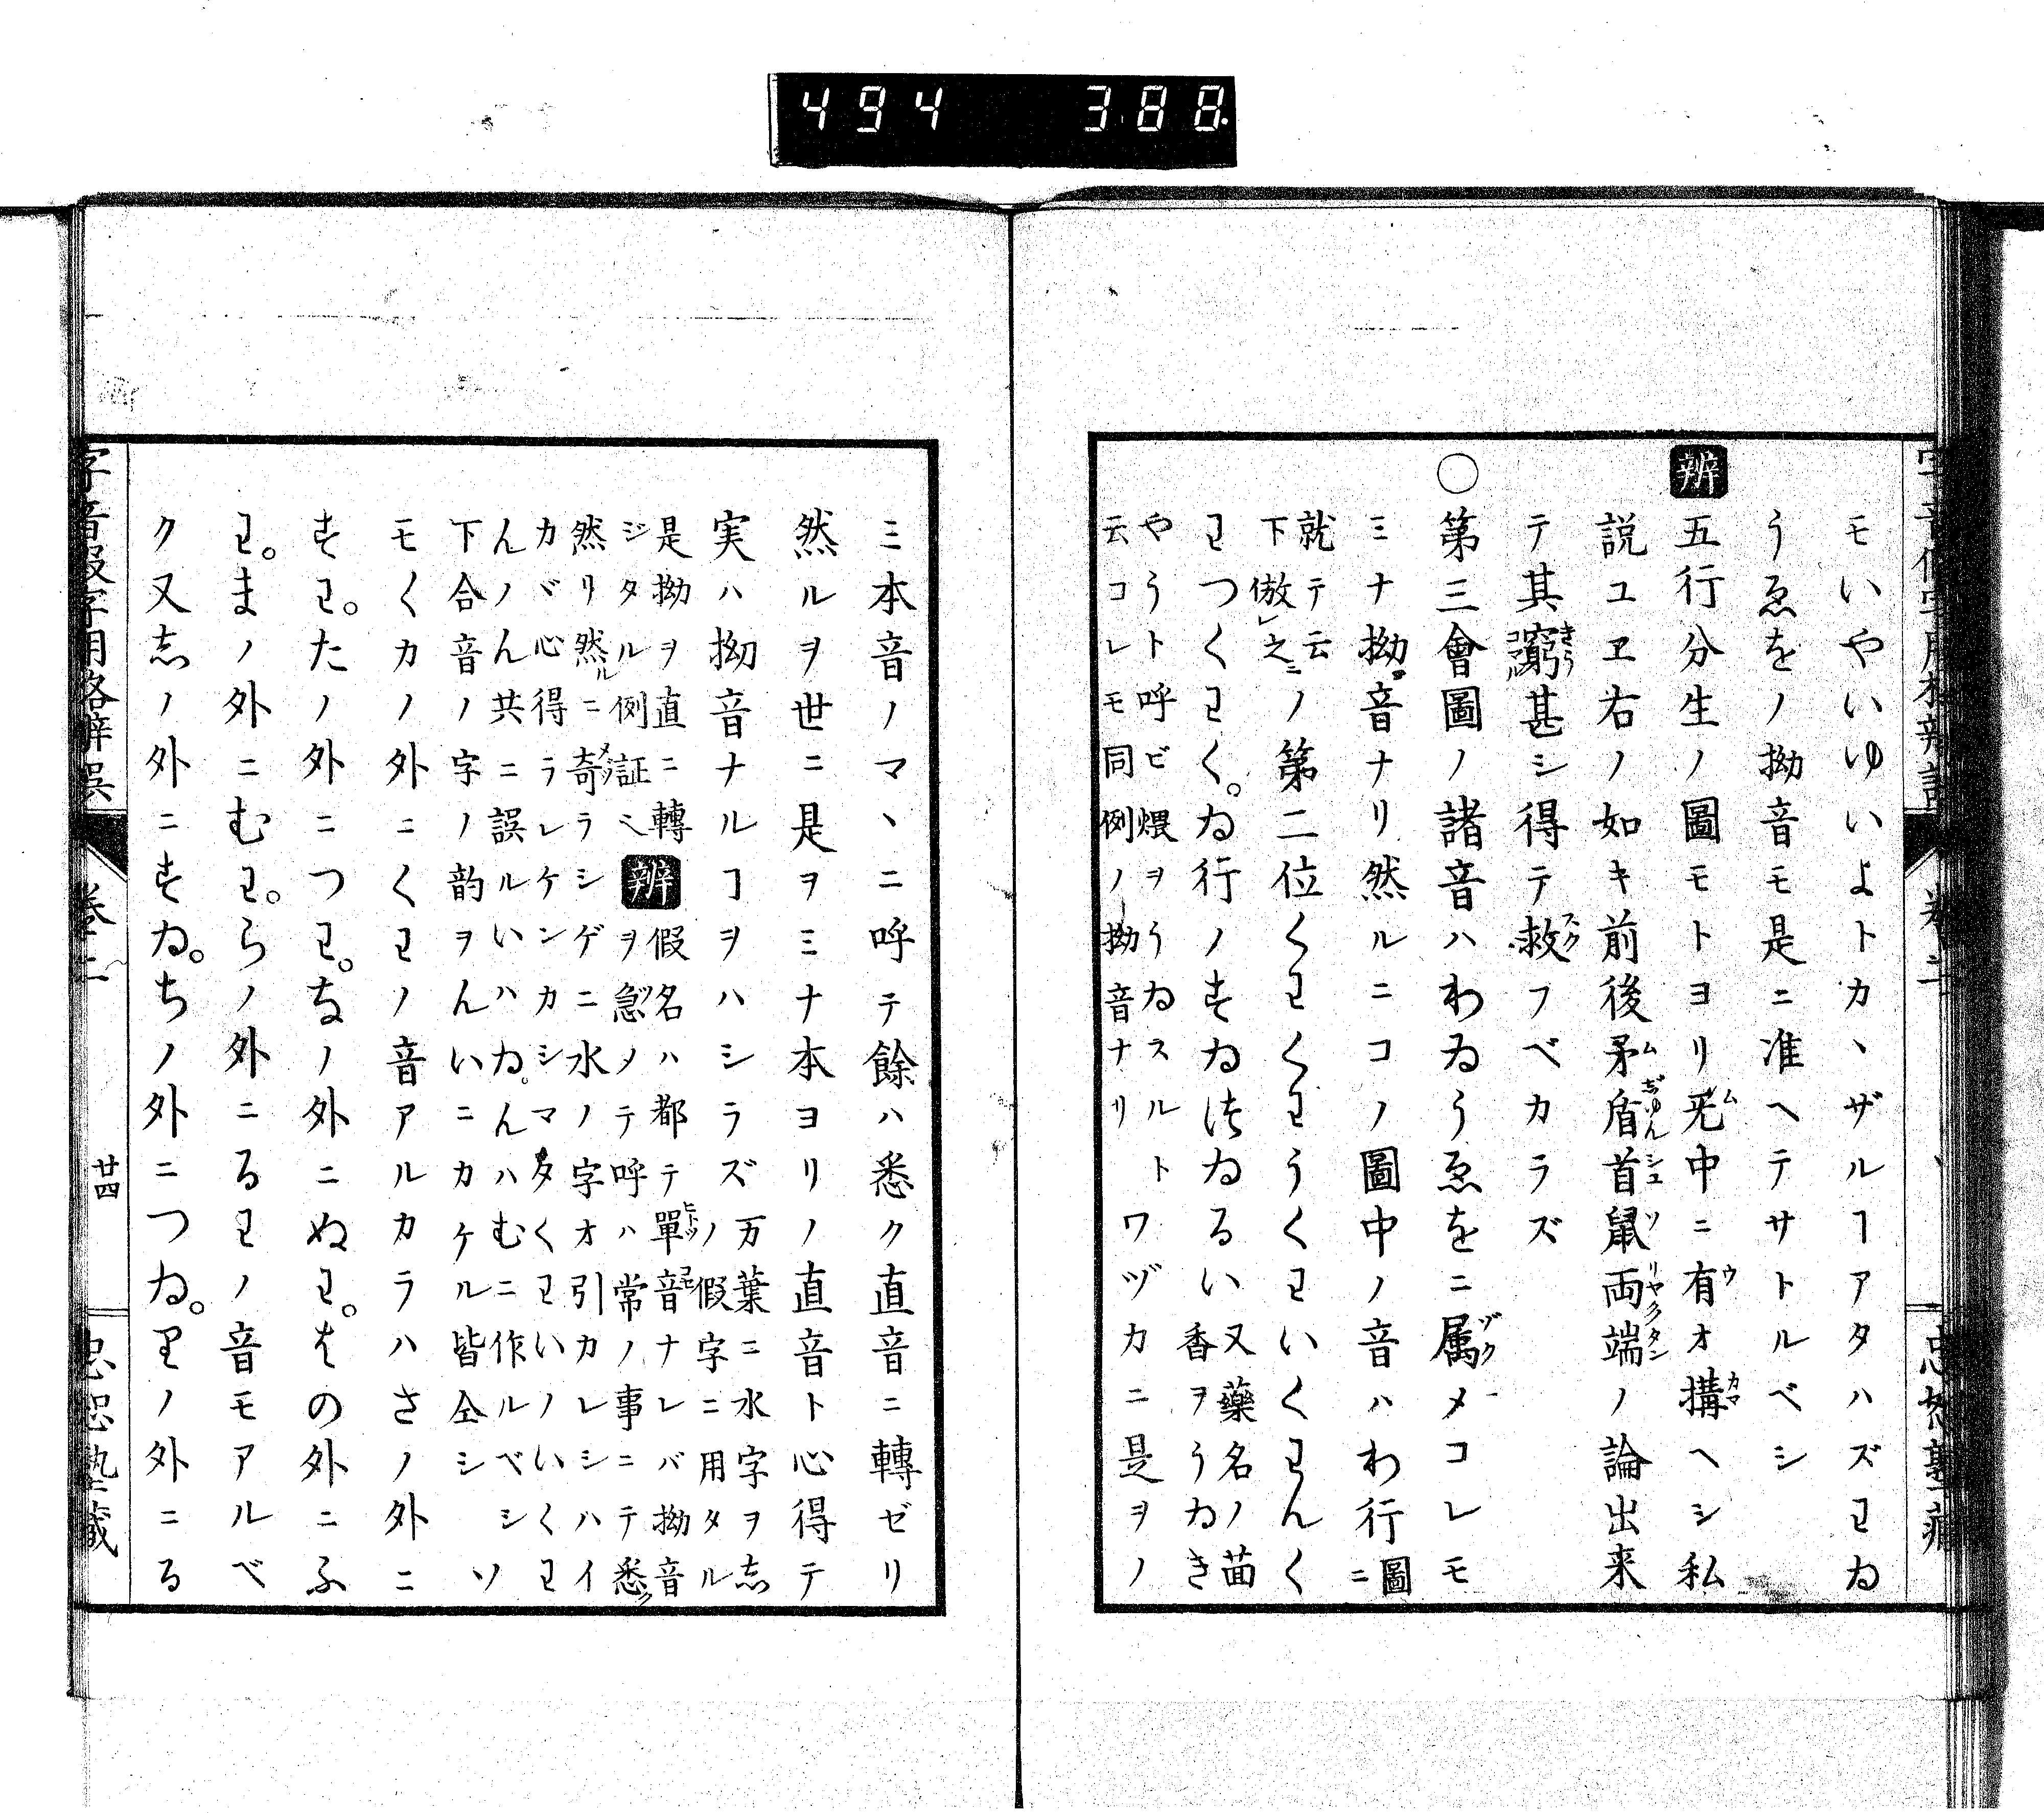 494 388
モいやいゆいよトカヽザルヿアタハズヱゐ
うゑをノ拗音モ是ニ准ヘテサトルベシ
辨 五行分生ノ圖モトヨリ无中ニ有オ搆ヘシ私
説ユヱ右ノ如キ前後矛盾首鼠両端ノ論出来
テ其窮甚シ得テ救フベカラズ
○第三會圖ノ諸音ハわゐうゑをニ属メコレモ
ミナ拗音ナリ然ルニコノ圖中ノ音ハわ行ニ圖
就テ云
下倣之ノ第二位くわくわうくわいくわんく
わつくわく。ゐ行ノすゐつゐるい又藥名ノ茴
香ヲうゐき
やうト呼ビ煨ヲうゐスルト
云コレモ同例ノ拗音ナリ
ワヅカニ是ヲノ
字音假字用格辨誤
卷二
忠恕塾藏
ミ本音ノマヽニ呼テ餘ハ悉ク直音ニ轉ゼリ
然ルヲ世ニ是ヲミナ本ヨリノ直音ト心得テ
実ハ拗音ナルヿヲハシラズ万葉ニ水字ヲ志
ノ假字ニ用タル
是拗ヲ直ニ轉
ジタル例証ミ
辨 假名ハ都テ單音ナレバ拗音
ヲ急メテ呼ハ常ノ事ニテ悉
然リ然ルニ奇ラシゲニ水ノ字オ引カレシハイ
カバ心得ラレケンカシマタくわいノいくわ
んノん共ニ誤ルいハゐ。んハむニ作ルベシ
下合音ノ字ノ韵ヲんいニカケル皆仝シ
ソ
モくカノ外ニくわノ音アルカラハさノ外ニ
すわ。たノ外ニつわ。なノ外ニぬわ。はの外ニふ
わ。まノ外ニむわ。らノ外ニるわノ音モアルベ
ク又志ノ外ニすゐ。ちノ外ニつゐ。りノ外ニる
字音假字用格辨誤
卷二
廿四
忠恕塾藏